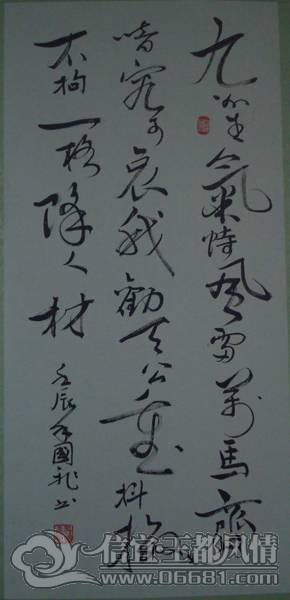 九州生氣恃風雷萬馬齊
喑究可哀我勸天公重抖擻
不拘一格降人材
壬辰國书
信宜玉都风情
www.06681.com